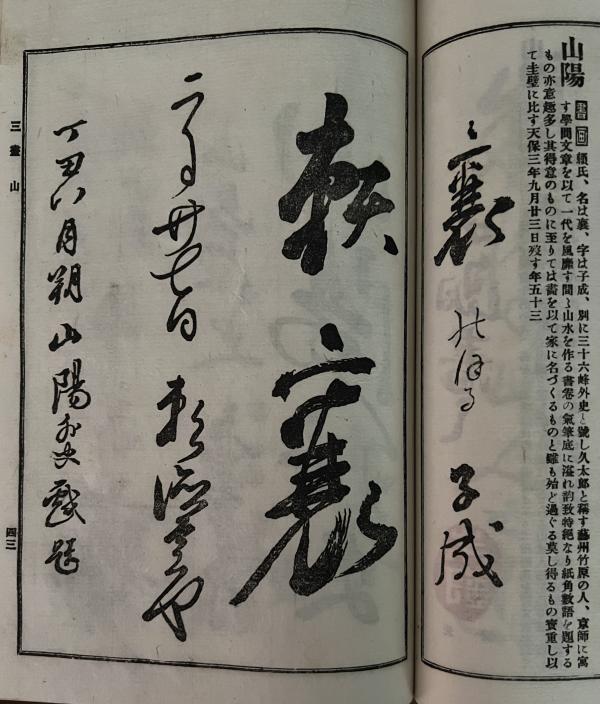 山陽
書 画 頼氏、名は襄、字は子成、別に三十六峰外史と號し久太郎と稱す藝州竹原の人、京師に寓
す學問文章を以て一代を風靡す間〻山水を作る書卷の氣筆底に溢れ韵致特絕なり紙角數語を題する
もの亦意趣多し其得意のものに至りては畵を以て家に名づくるものと雖も殆ど過ぐる莫し得るもの寶重し以
て圭璧に比す天保三年九月廿三日歿す年五十三
襄
子成
頼襄
二月廿七日
丁丑八月朔山陽外史戲題
三畫山
四三